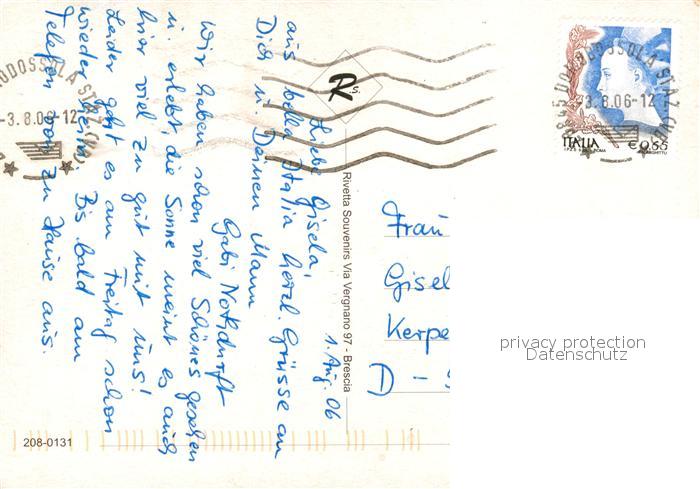 1. Aug. 06
Liebe Gisela,
aus bella Italia herzl. Grüsse an
Dich u. Deinen Mann
Gabi Notdurft
Wir haben schon viel Schönes gesehen
u. erlebt, die Sonne meint es auch
hier viel zu gut mit uns!
Leider geht es am Freitag schon
wieder heim. Bis bald am
Telefon von zu Hause aus.
R S.
Rivetta Souvenirs Via Vergnano 97 - Brescia
208-0131
DOMODOSSOLA STAZ.
-3.8.06-12
DOMODOSSOLA STAZ.
-3.8.06-12
ITALIA
€0,65
Frau
Gisel
Kerpe
D -
privacy protection
Datenschutz